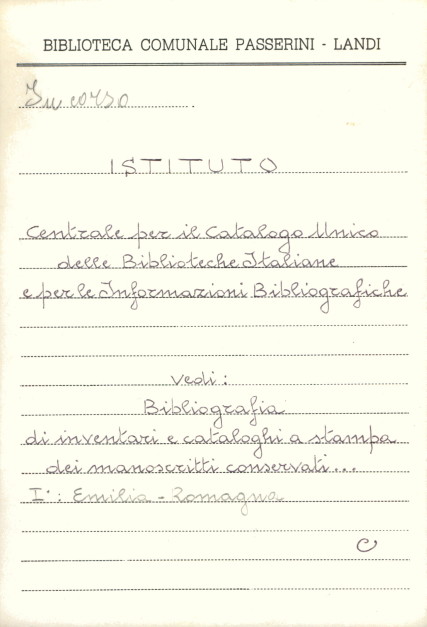 BIBLIOTECA COMUNALE PASSERINI - LANDI
In corso
ISTITUTO
Centrale per il Catalogo Unico
delle Biblioteche Italiane
e per le Informazioni Bibliografiche
vedi:
Bibliografia
di inventari e cataloghi a stampa
dei manoscritti conservati...
I°: Emilia - Romagna
C